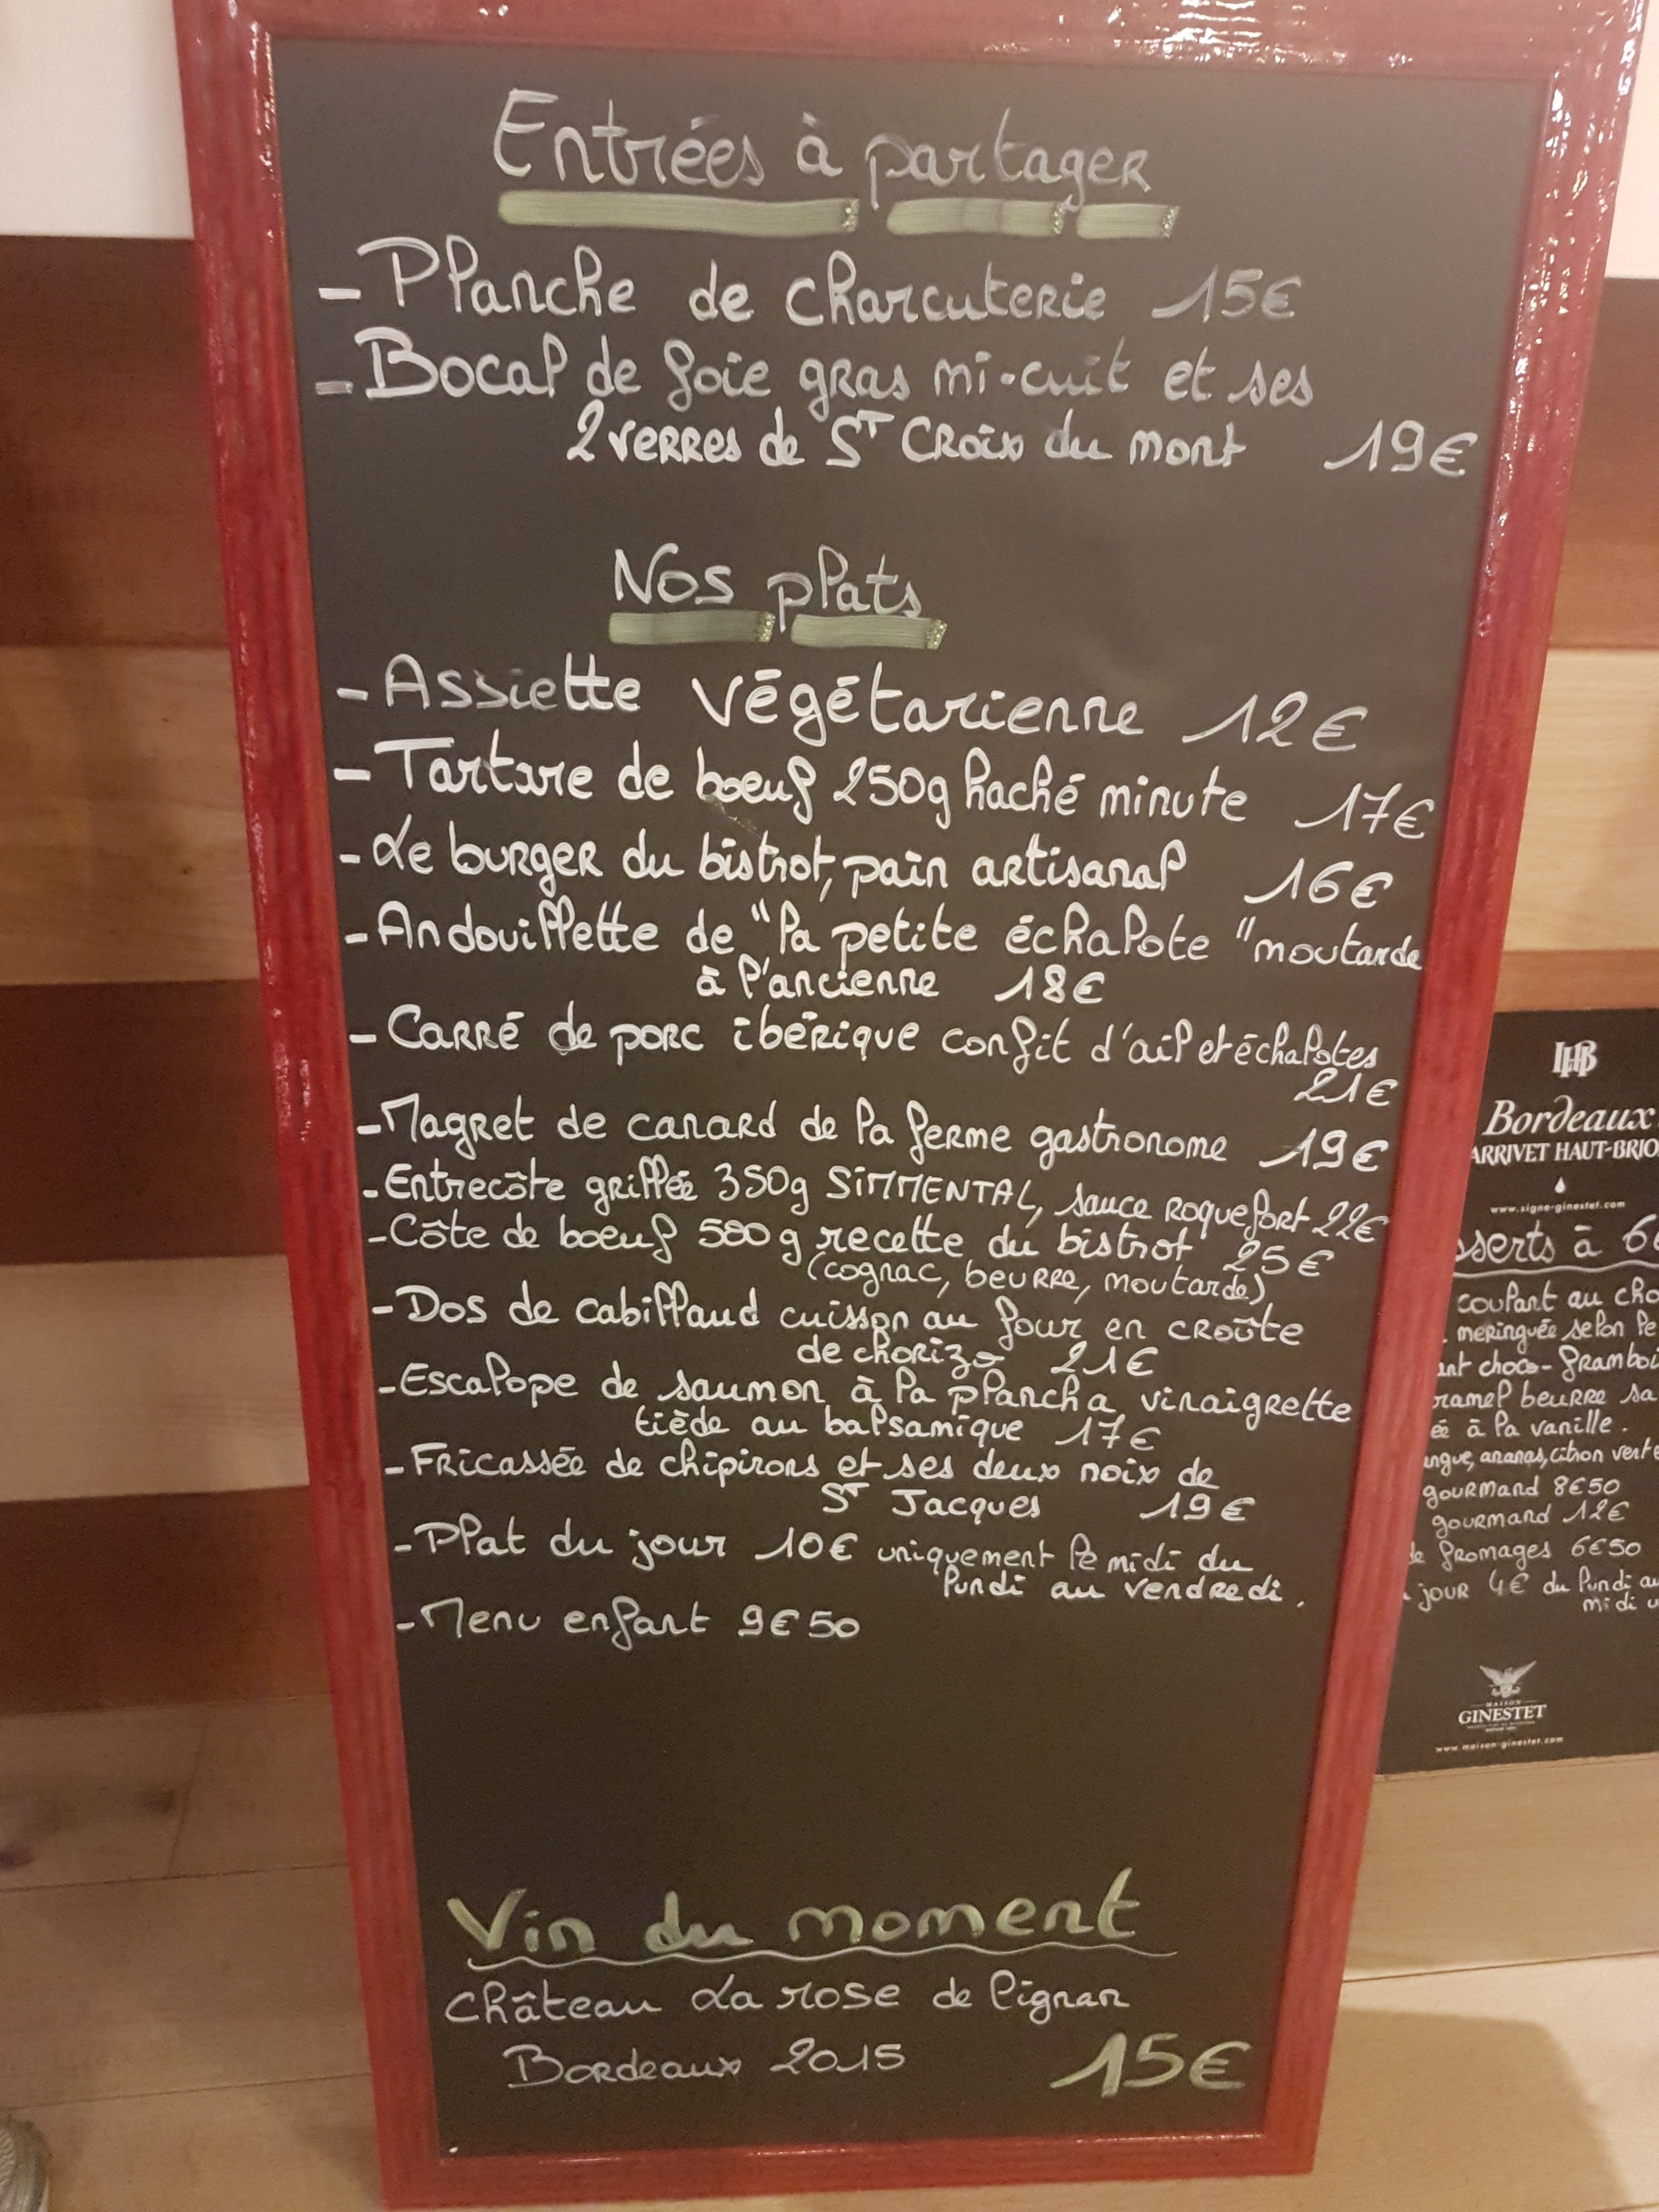 Entrées à partager
- Planche de charcuterie 15€
- Bocal de foie gras mi-cuit et ses
2 verres de ST Croix du mont 19€
Nos plats
- Assiette végétarienne 12€
- Tartare de boeuf 250g haché minute 17€
- Le burger du bistrot, pain artisanal 16€
- Andouillette de "la petite échalote" moutarde
à l'ancienne 18€
- Carré de porc ibérique confit d'ail et échalotes
21€
- Magret de canard de la ferme gastronome 19€
- Entrecôte grillée 350g SIMMENTAL, sauce roquefort 22€
- Côte de boeuf 500g recette du bistrot 25€
(cognac, beurre, moutarde)
- Dos de cabillaud cuisson au four en croûte
de chorizo 21€
- Escalope de saumon à la plancha vinaigrette
tiède au balsamique 17€
- Fricassée de chipirons et ses deux noix de
ST Jacques 19€
- Plat du jour 10€ uniquement le midi du
lundi au vendredi.
- Menu enfant 9€50
Vin du moment
Château La rose de lignan
Bordeaux 2015 15€
LHB
Bordeaux
ARRIVET HAUT-BRIO
www.signe-ginestet.com
sserts à 6€
coulant au cho
meringuée selon le
ant choco-framboi
ramel beurre sa
ée à la vanille.
angue, ananas, citron vert
gourmand 8€50
gourmand 12€
de fromages 6€50
jour 4€ du lundi au
midi u
MAISON
GINESTET
www.maison-ginestet.com